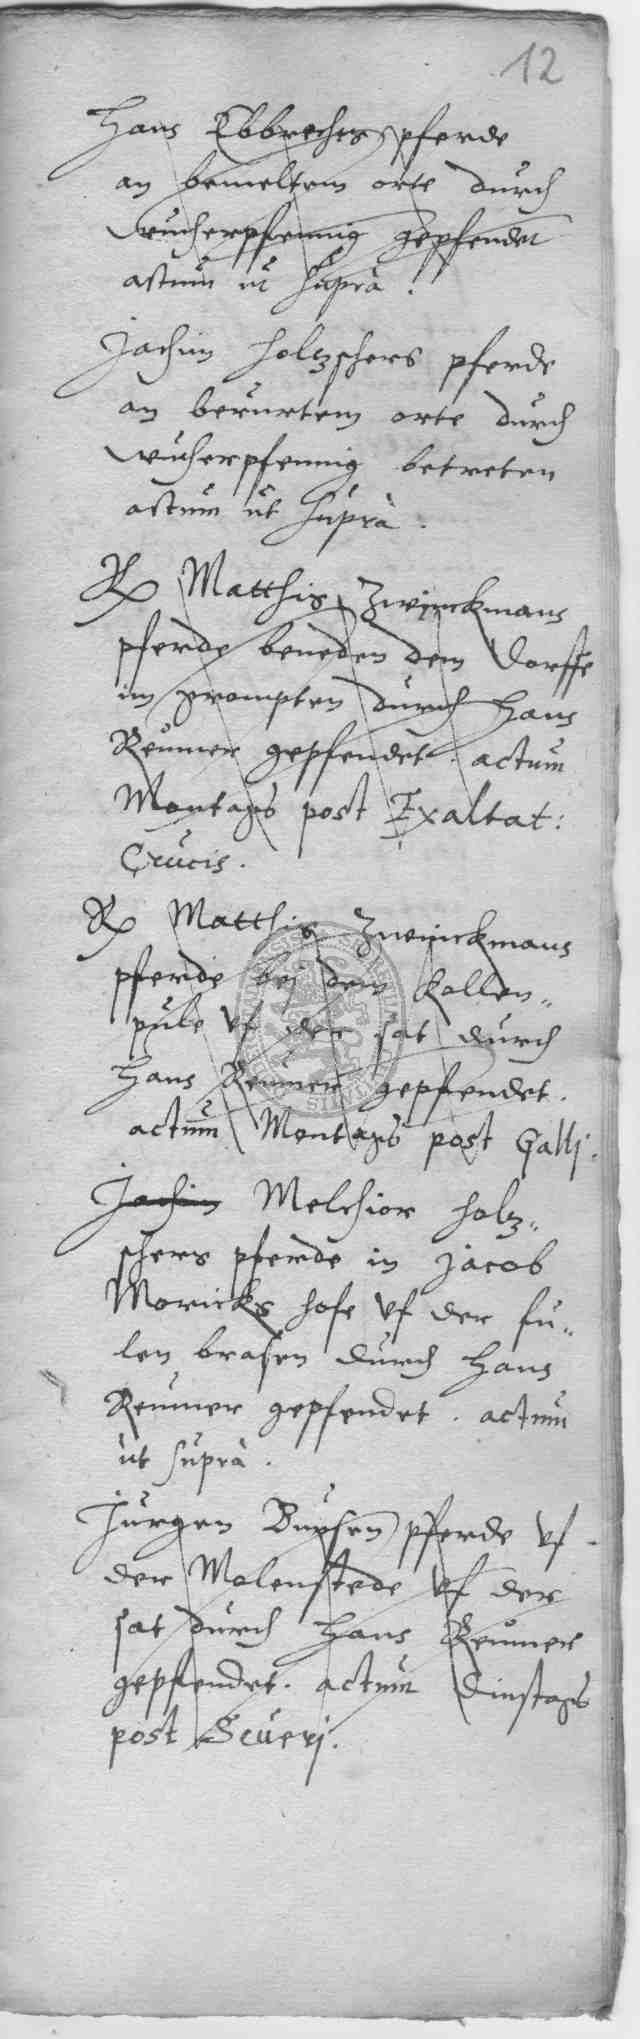 12
Hans Ebbrechts pferde
an bemeltem orte durch
wucherpfennig gepfendet
actum ut suprà.
Jachim holtzschers pferde
an berurtem orte durch
wucherpfennig betreten
actum ut suprà.
Rx Matthis Zwinckmans
pferde beneden dem Dorffe
im prompten durch Hans
Reumer gepfendet. actum
Montags post Exaltat:
Crucis.
Rx Matthis Zwinckmans
pferde bej dem Kollen„
pule vf der sat durch
Hans Reumer gepfendet.
actum Montags post Gallj.
Jachim Melchior holtz„
schers pferde in Jacob
Moricks hofe vf der fu„
len brasen durch Hans
Reumer gepfendet. actum
ut suprà.
Jurgen Buessen pferde vf
der Molenstede vf der
sat durch Hans Reumer
gepfendet. actum Dinstags
post Seuerj.